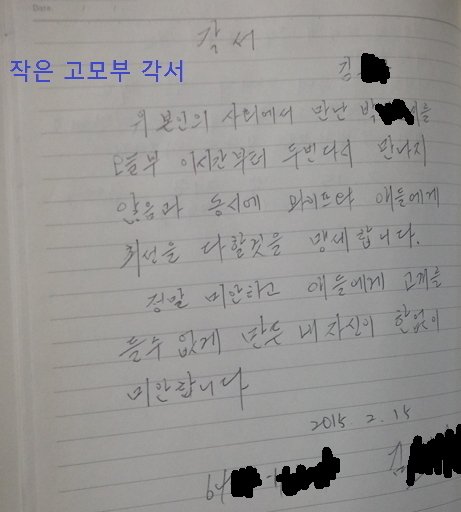 Date.
각서
작은 고모부 각서
김
위 본인의 사회에서 만난 박 를
오늘부 이시간부터 두번다시 만나지
않음과 동시에 와이프와 애들에게
최선을 다할것을 맹세합니다.
정말 미안하고 애들에게 고개를
들수 없게 만든 내 자신이 한없이
미안합니다
2015. 2. 15
64 김